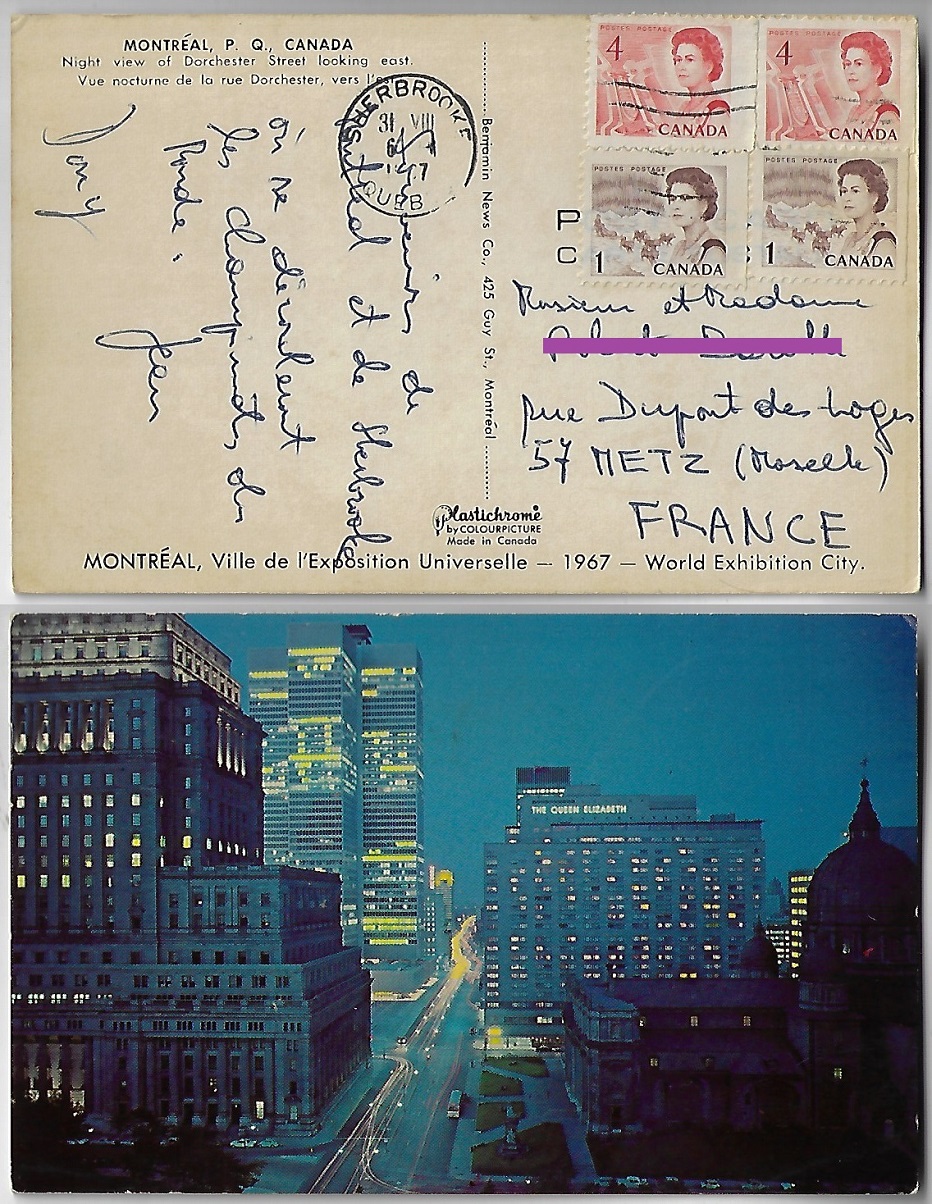 MONTRÉAL, P. Q., CANADA
Night view of Dorchester Street looking east.
Vue nocturne de la rue Dorchester, vers l'est.
SHERBROOKE
31 VIII
QUEB
Souvenirs de
Montréal et de Sherbrooke
où se déroulent
les Championnats du
Monde.
Dany
Jean
Benjamin News Co., 425 Guy St., Montréal
POSTES POSTAGE
4
CANADA
POSTES POSTAGE
4
CANADA
POSTES POSTAGE
1
CANADA
POSTES POSTAGE
1
CANADA
P
C
Monsieur et Madame
rue Dupont des Loges
57 METZ (Moselle)
FRANCE
Plastichrome
by COLOURPICTURE
Made in Canada
MONTRÉAL, Ville de l'Exposition Universelle — 1967 — World Exhibition City.
THE QUEEN ELIZABETH